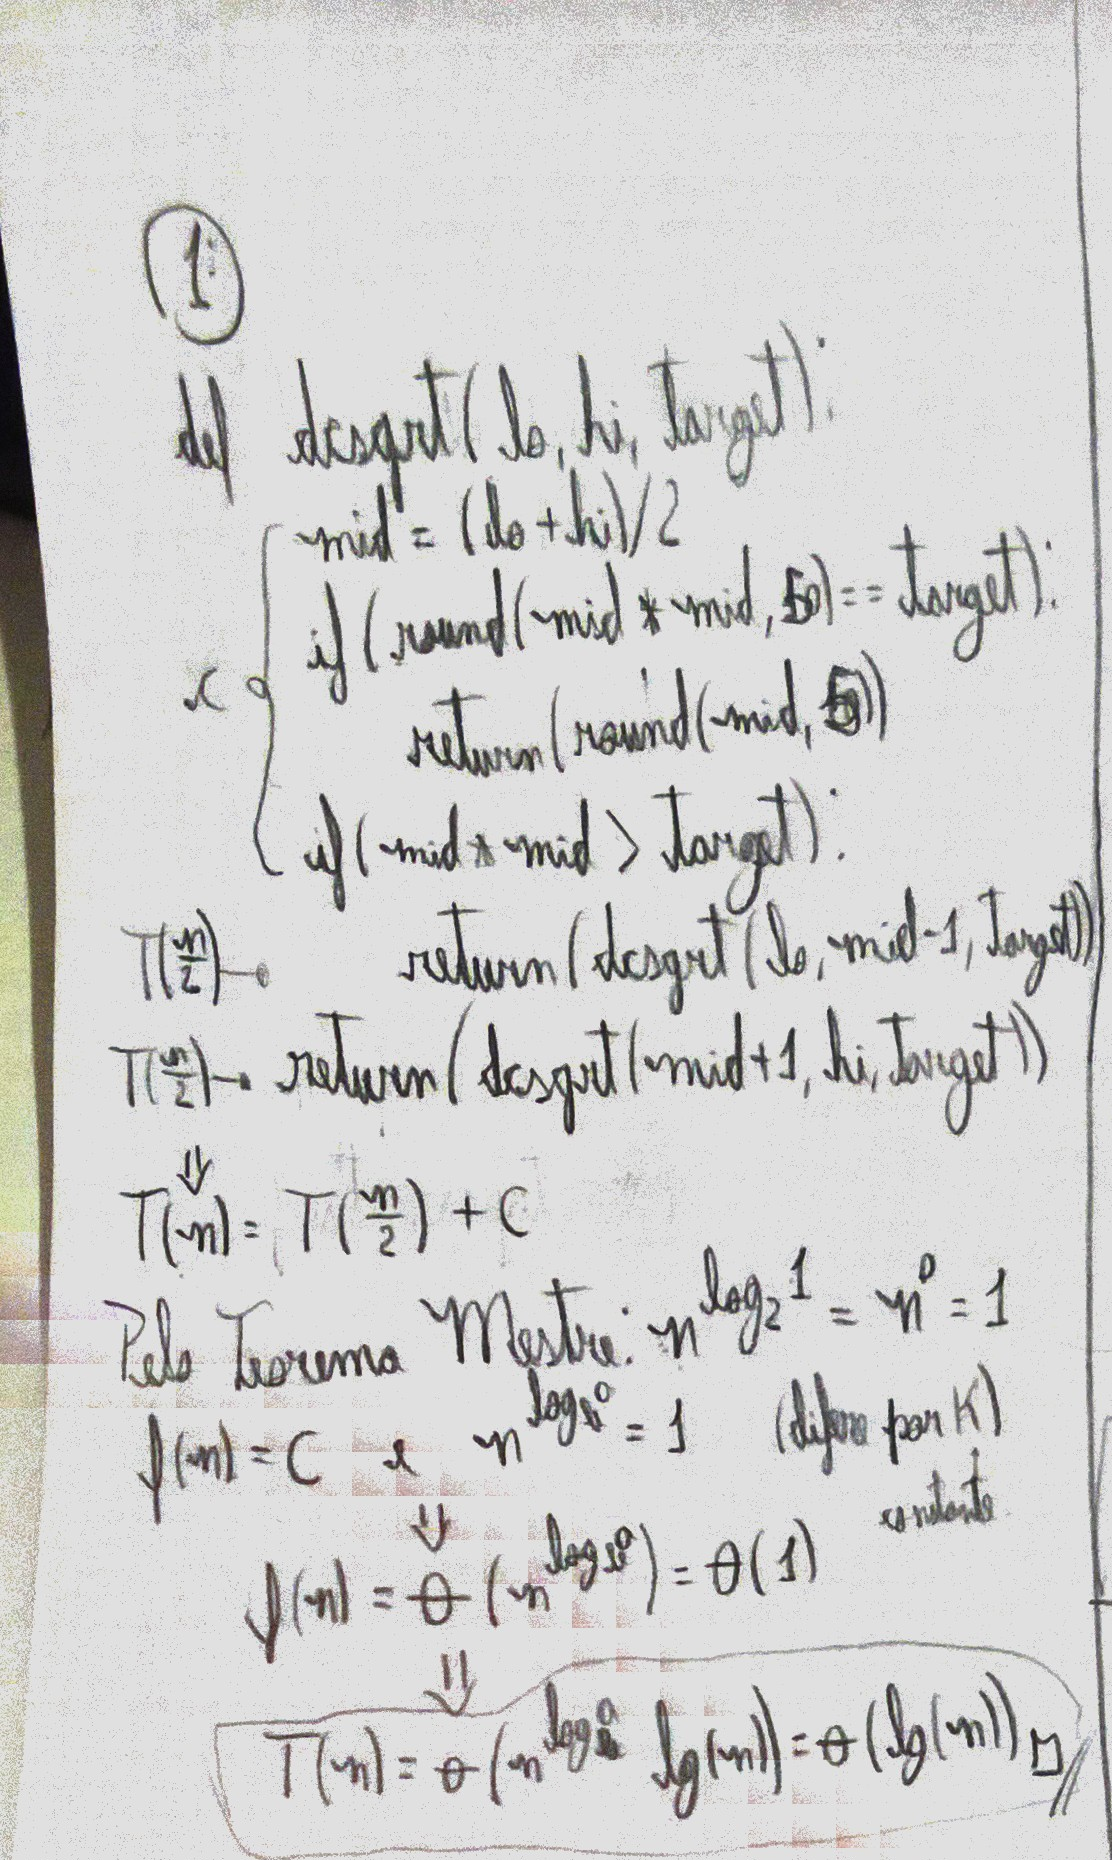 1:
def dcsqrt(lo, hi, target):
mid = (lo + hi)/2
if (round(mid * mid, 5) == target):
c
return (round(mid, 5))
if (mid * mid > target):
T(n/2) → return (dcsqrt(lo, mid-1, target))
T(n/2) → return (dcsqrt(mid+1, hi, target))
⇓
T(n) = T(n/2) + C
Pelo Teorema Mestre: n^{log_2 1} = n^0 = 1
f(n) = C e n^{log_b a} = 1 (difere por K)
constante
⇓
f(n) = Θ(n^{log_b a}) = Θ(1)
⇓
T(n) = Θ(n^{log_b a} lg(n)) = Θ(lg(n)) □